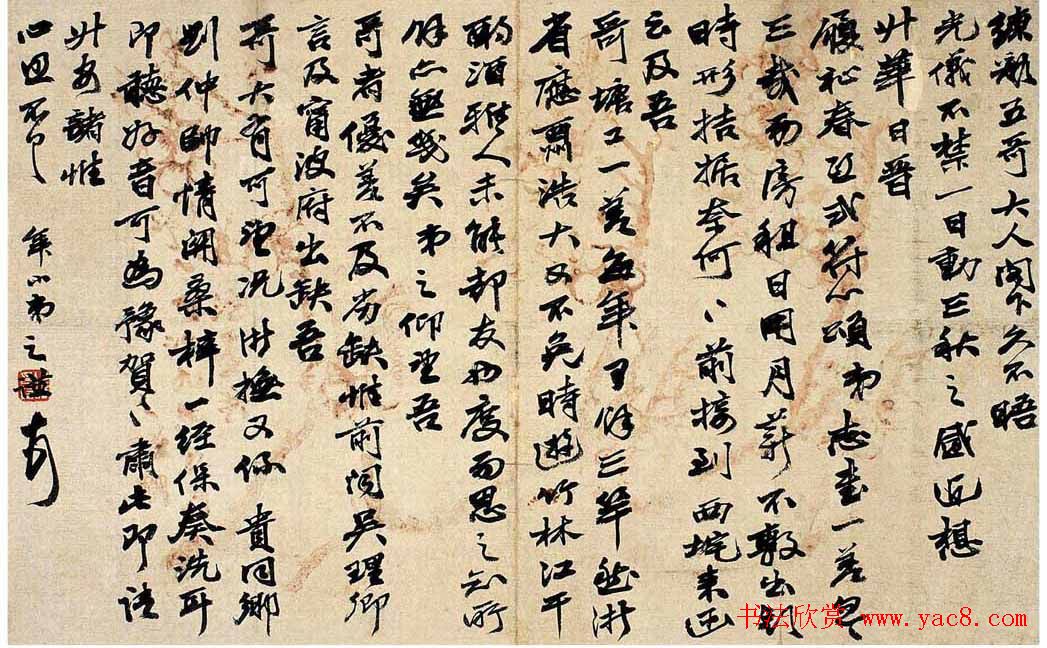 練彩五哥大人閣下久不晤
光儀不禁一日動三秋之感近想
升華日晉
履祉春孟式符心頌弟志書一差
三載而房租日用月薪不敷出
時形拮据奈何〻前接到西垞來函
云及吾
哥塘工一差每年可餘三竿然浙
省應酬浩大又不免時遊竹林江干
酌酒雅人未能却友弟度而思之知所
餘亦無幾矣弟之仰望吾
哥者優差不及劣缺惟前閱吳理卿
言及甯波府出缺吾
哥大有可望況浙撫又係貴同鄉
劉仲帥情關桑梓一經保奏洗耳
即聽好音可為豫賀〻肅此即請
升安諸惟
心照不宣 年小弟之謙頓
書法欣賞 www.yac8.com